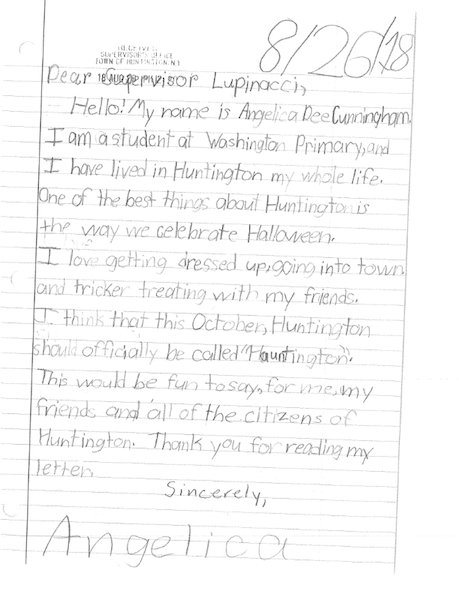 RECEIVED
SUPERVISOR'S OFFICE
TOWN OF HUNTINGTON, N.Y.
8/26/18
18 AUG
Dear Supervisor Lupinacci,
Hello! My name is Angelica Dee Cunningham.
I am a student at Washington Primary, and
I have lived in Huntington my whole life.
One of the best things about Huntington is
the way we celebrate Halloween.
I love getting dressed up, going into town
and tricker treating with my friends.
I think that this October, Huntington
should officially be called "Hauntington".
This would be fun to say, for me, my
friends and all of the citizens of
Huntington. Thank you for reading my
letter.
Sincerely,
Angelica